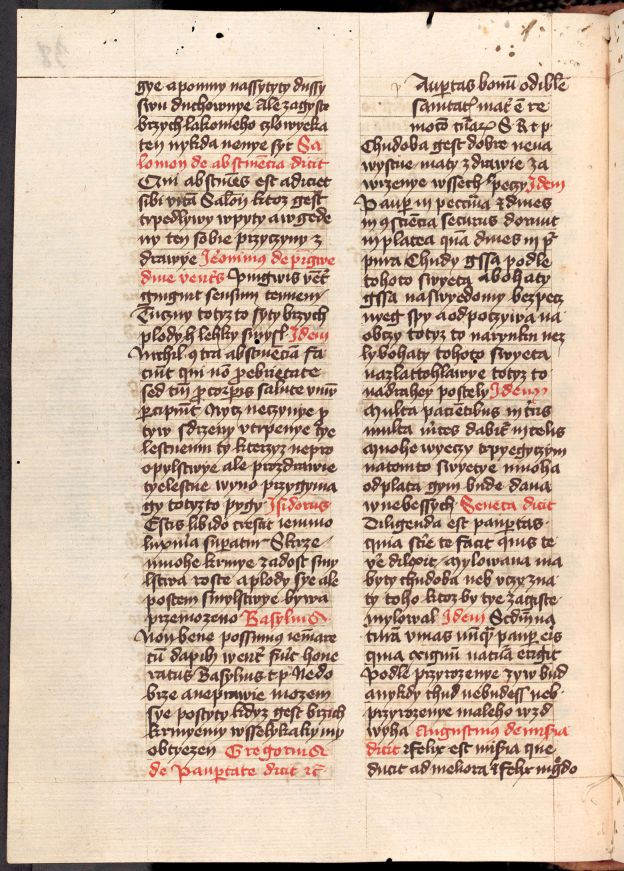 gye a pomny nassytyty dussy
swu duchownye Ale zagyste
brzych lakomeho czlowyeka
ten nykda nenye syt Sa
lomon de abstinēcia dicit
Qui abstinēs est adiciet
sibi vitā Salon̄ ktoz gest
trpedlywy wpyty a w gede
ny ten sobie przyczyny z
drawye Jeronimus de pīgwe
dine ventꝭ Pingwis vēt̉
gingnit sensum tenuem
Tuczny totyz to syty brzych
plody h lehky smysl Jdem
Nichil ꝯtra abstinēciā fa
ciūt qui nō ꝓ ebrietate
sed tm̄ ꝓ corꝑis salute vinū
ꝑcipiūt Nycz neczynye p
tyw sdrzeny vtrpenye tye
lestnemu ty kterzyz nepro
opylstwye ale prozdrawie
tyelestne wyno przygyma
gy totyz to pygy Jsidorus
Estis libido crescit ieiunio
luxuria suꝑatur Skrze
mnohe krmye zadost smy
lstwa roste a plody sye ale
postem smylstwye bywa
przemozeno Basylius
Non bene possumus ieiūare
cū dapibꝫ went̉ fuīt hone
ratus Basylius t p Nedo
brze a neprawie mozem
sye postyty kdyz gest brzich
krmyemy wsselykakymy
obtyezen Gregorius
de Paupertate dicit ꝛc̄
Auꝑtas bonū odibile
sanitatꝭ mat̉ ē re
motō curaꝝ S R t p
Chudoba gest dobre nena
wystne maty zdrawie za
wrzenye wssech peczy Jdem
Pauꝑ in peccunia ⁊ diues
in ꝯsciēcia securus dormit
in platea quā diues in pur
pura Chudy gssa podle
tohoto swyeta a bohaty
gssa na swedomy bezpecz
nyeg spy a odpoczywa na
obczy totyz to narynku nez
ly bohaty tohoto swyeta
na zlattohlawye totyz to
na drahey postely Jdem
Multa pacientibus in tꝛīs
multa ... dabit̉ in celis
Mnohe wyeczy trpyegyczym
na tomto swyetye mnoha
odplata gym bude dana
w nebessych Seneca dicit
Diligenda est pauꝑtas
quia scīre te facit quis te
vē dilexit Mylowana ma
byty chudoba neb vczy zna
ty toho ktoz by tye zagiste
mylowal Jdem Scdm̄
nā vinas nūqꝫ pauꝑ eīs
quia exiguū natura exigit
Podle przyrozenye zyw bud
a nykdy chud nebudess neb
przyrozenye maleho wzd
wyha Augustinus de misīa
dicit Felix est misīa que
ducit ad meliora Felix